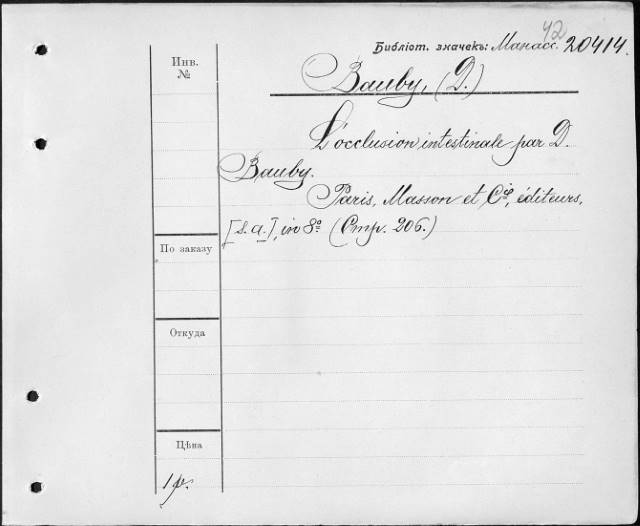 42
Библіот. значекъ: Манасс. 20414.
Инв.
№
Bauby, (D.)
L'occlusion intestinale par D.
Bauby.
Paris, Masson et Cie, éditeurs,
[s. a.], in 8º (Стр. 206.)
По заказу
Откуда
Цѣна
1 р.